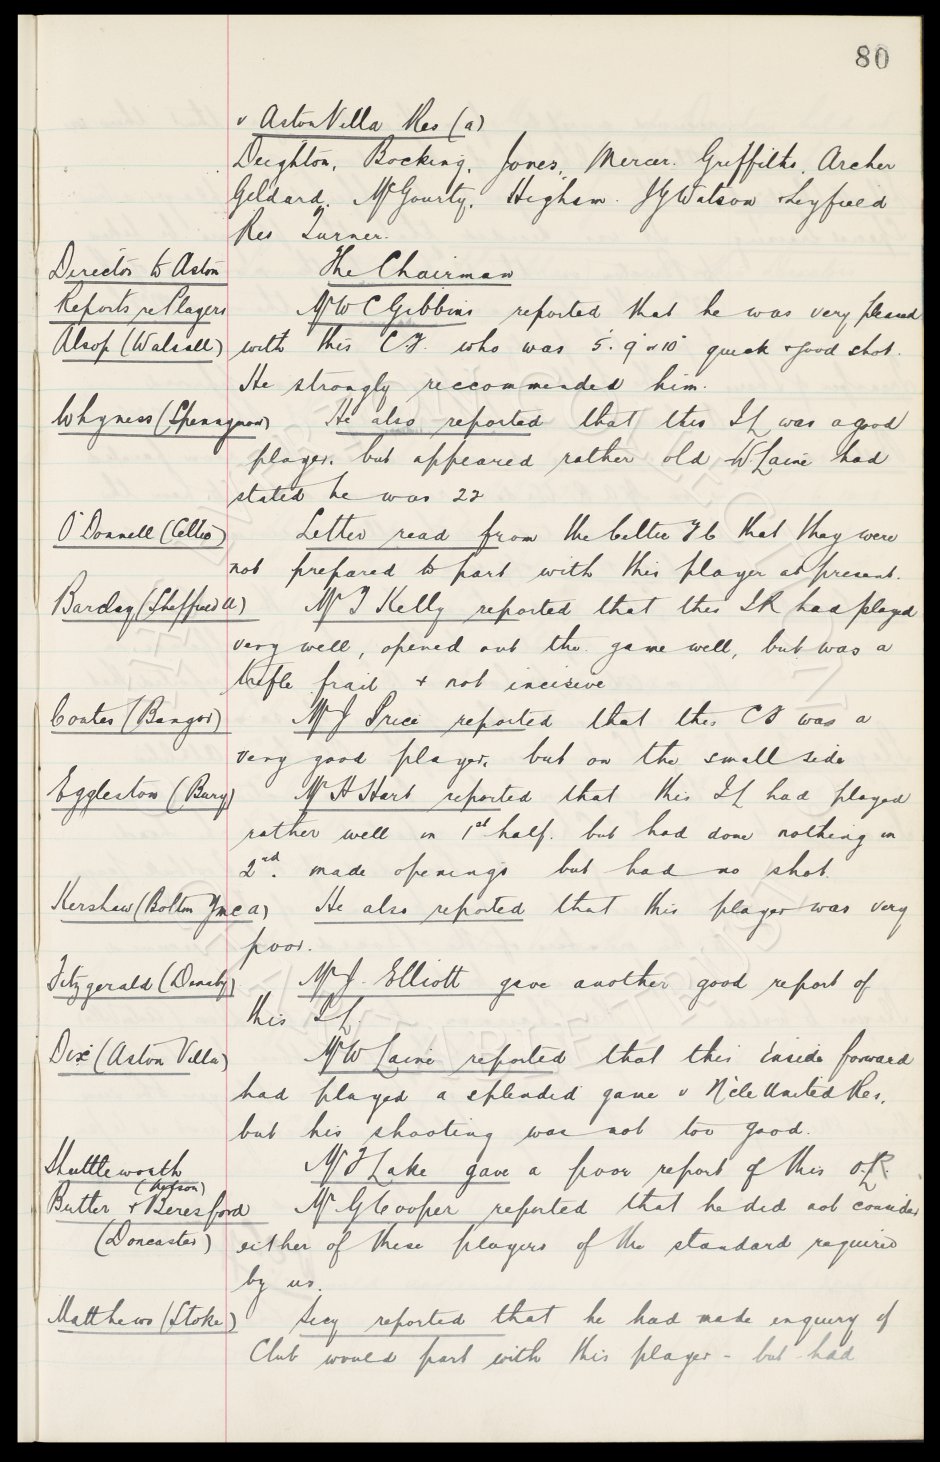 80
v Aston Villa Res (a)
Deighton, Bocking, Jones, Mercer. Griffiths, Archer
Geldard, McGourty, Higham. JG Watson + Leyfield
Res Turner.
Director to Aston The Chairman
Reports re Players Mr W C Gibbins reported that he was very pleased
Alsop (Walsall) with this C.F. who was 5.9 or 10 quick + good shot.
He strongly reccommended him.
Whyness (Spennymoor) He also reported that this IL was a good
player. but appeared rather old W Laine had
stated he was 22
O'Donnell (Celtic) Letter read from the Celtic F C that they were
not prepared to part with this player at present.
Barclay (Sheffield U) Mr T Kelly reported that this IR had played
very well, opened out the game well, but was a
trifle frail + not incisive
Coates (Bangor) Mr J Price reported that this CF was a
very good player. but on the small side
Egglestom (Bury) Mr H Hart reported that this IL had played
rather well in 1st half. but had done nothing in
2nd. made openings but had no shot.
Kershaw (Bolton Ymca) He also reported that this player was very
poor.
Fitzgerald (Denaby) Mr J. Elliott gave another good report of
this IL
Dix (Aston Villa) Mr W Laine reported that this inside forward
had played a splendid game v N'cle United Res.
but his shooting was not too good.
Shuttleworth Mr F Lake gave a poor report of this O.R
L
Butter + Beresford Mr G Cooper reported that he did not consider
(Doncaster) either of these players of the standard required
by us.
Matthews (Stoke) Secy reported that he had made enquiry if
Club would part with this player - but had